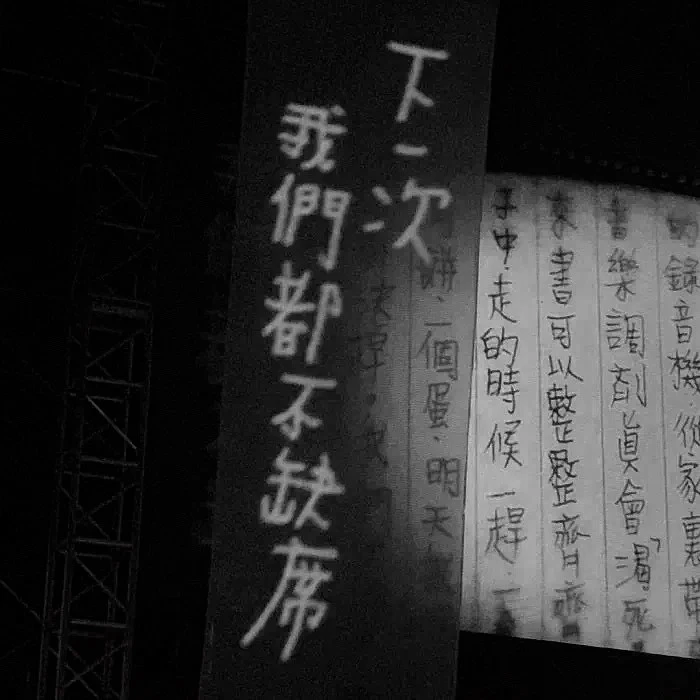 下一次
我們都不缺席
的錄音機從家裏帶
音樂調劑真會「渴死
書可以整整齊齊
子中.走的時候一趕.一
餅.二個蛋.明天
趕。我